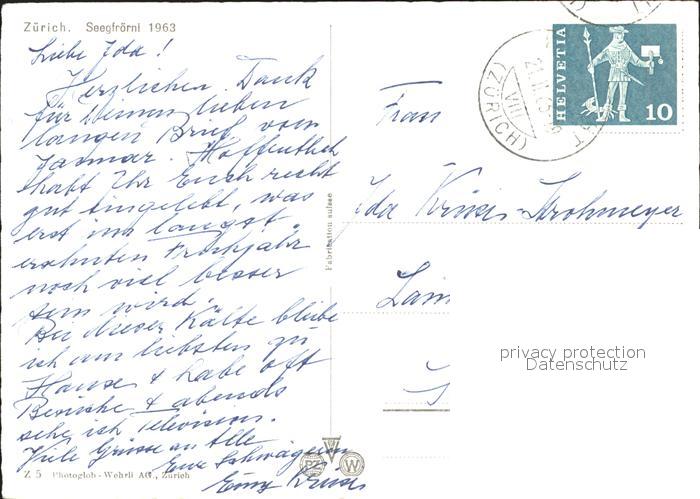 Zürich. Seegfrörni 1963
Liebe Ida!
Herzlichen Dank
für Deinen lieben
langen Brief vom
Januar. Hoffentlich
habt Ihr Euch recht
gut eingelebt, was
erst im längst
ersehnten Frühjahr
noch viel besser
sein wird.
Bei dieser Kälte bleibe
ich am liebsten zu
Hause & habe oft
Besuche & abends
sehe ich Television.
Viele Grüsse an Alle
Eure Schwägerin
Z 5 Photoglob-Wehrli AG., Zürich
Fabrication suisse
PZ W
Frau
Ida
HELVETIA
10
(ZÜRICH)
VIII
privacy protection
Datenschutz